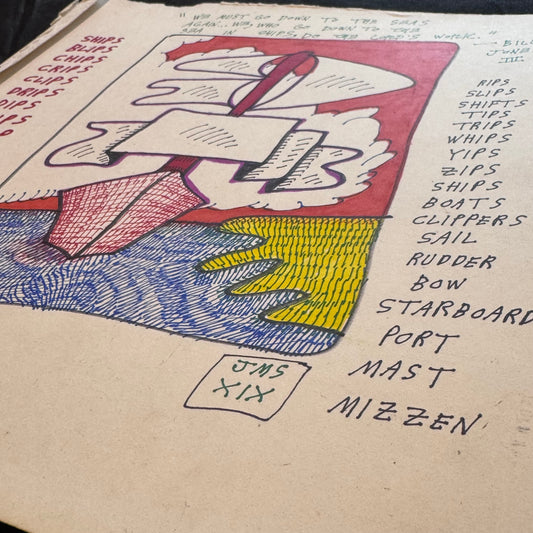 "WE MUST GO DOWN TO THE SEAS
AGAIN... WE, WHO GO DOWN TO THE
SEA IN SHIPS, DO THE LORD'S WORK."
— BILL
JUNE
III.
SHIPS
BLIPS
CHIPS
GRIPS
CLIPS
DRIPS
DIPS
IPS
P
RIPS
SLIPS
SHIFTS
TIPS
TRIPS
WHIPS
YIPS
ZIPS
SHIPS
BOATS
CLIPPERS
SAIL
RUDDER
BOW
STARBOARD
PORT
MAST
MIZZEN
JMS
XIX